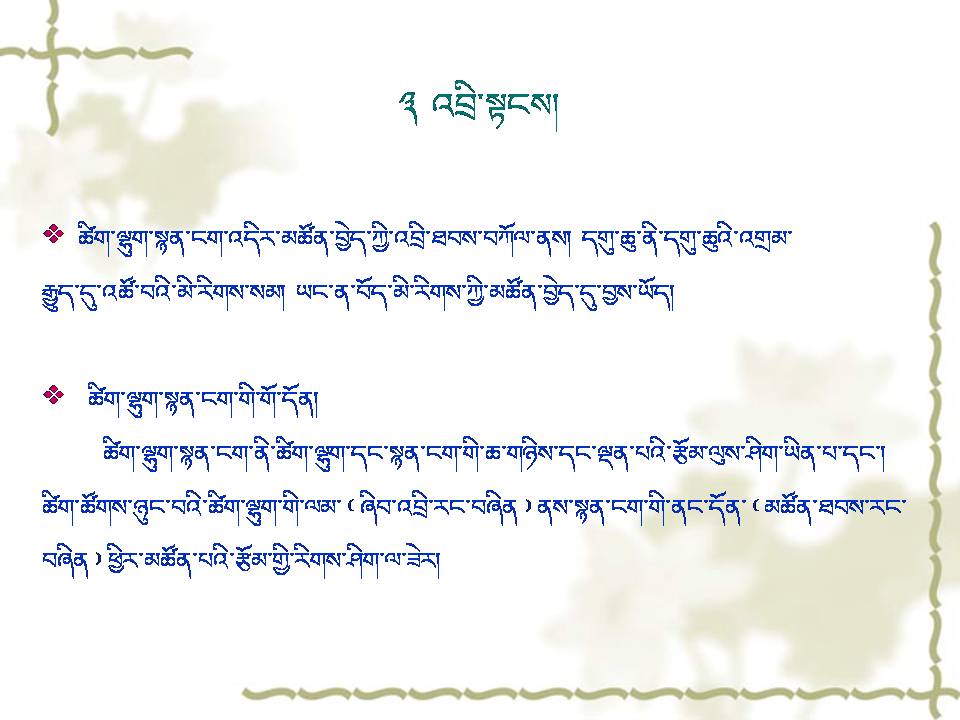 ༣ འབྲི་སྟངས།
❖ ཚིག་ལྷུག་སྙན་ངག་འདིར་མཚོན་བྱེད་ཀྱི་འབྲི་ཐབས་བཀོལ་ནས། དགུ་ཆུ་ནི་དགུ་ཆུའི་འགྲམ་
རྒྱུད་དུ་འཚོ་བའི་མི་རིགས་སམ། ཡང་ན་བོད་མི་རིགས་ཀྱི་མཚོན་བྱེད་དུ་བྱས་ཡོད།
❖ ཚིག་ལྷུག་སྙན་ངག་གི་གོ་དོན།
ཚིག་ལྷུག་སྙན་ངག་ནི་ཚིག་ལྷུག་དང་སྙན་ངག་གི་ཆ་གཉིས་དང་ལྡན་པའི་རྩོམ་ལུས་ཤིག་ཡིན་པ་དང་།
ཚིག་ཚོགས་ཉུང་བའི་ཚིག་ལྷུག་གི་ལམ་（ཞིབ་འབྲི་རང་བཞིན）ནས་སྙན་ངག་གི་ནང་དོན་（མཚོན་ཐབས་རང་
བཞིན）ཕྱིར་མཚོན་པའི་རྩོམ་གྱི་རིགས་ཤིག་ལ་ཟེར།